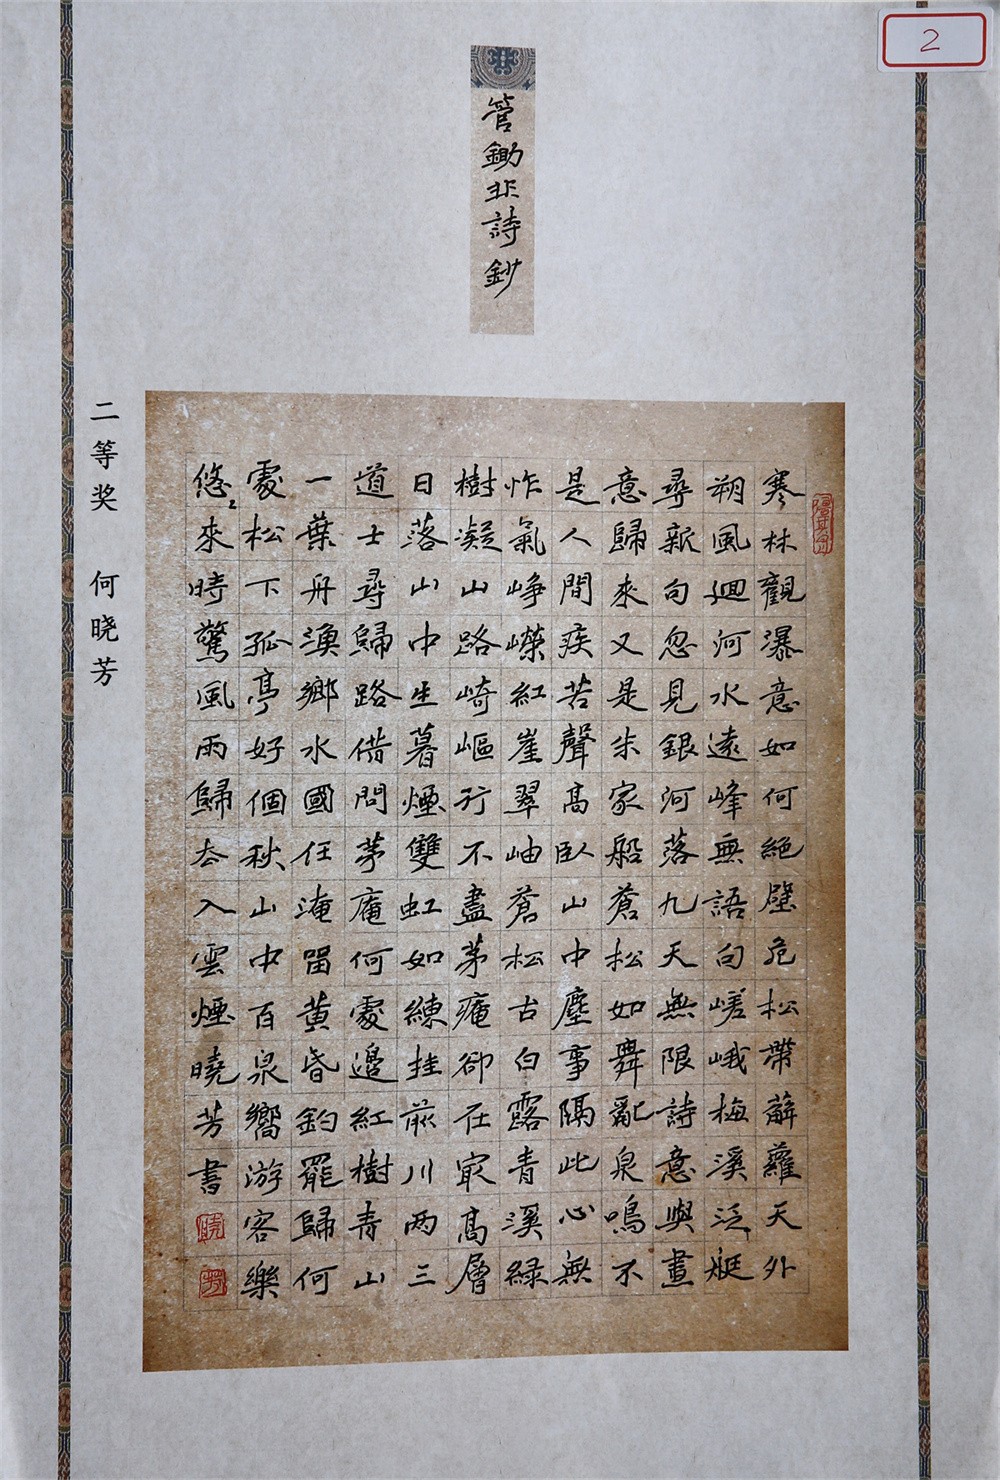 2
管鋤非詩鈔
寒林觀瀑意如何絕壁危松帶薜蘿天外
朔風迴河水遠峰無語向嵯峨梅溪泛艇
尋新句忽見銀河落九天無限詩意與畫
意歸來又是米家船蒼松如舞亂泉鳴不
是人間疾苦聲高臥山中塵事隔此心無
怍氣崢嶸紅崖翠岫蒼松古白露青溪綠
樹凝山路崎嶇行不盡茅庵卻在最高層
日落山中生暮煙雙虹如練挂前川兩三
道士尋歸路借問茅庵何處邊紅樹青山
一葉舟漁鄉水國任淹留黃昏釣罷歸何
處松下孤亭好個秋山中百泉嚮游客樂
悠〻來時驚風雨歸去入雲煙曉芳書
曉
芳
二等奖 何晓芳